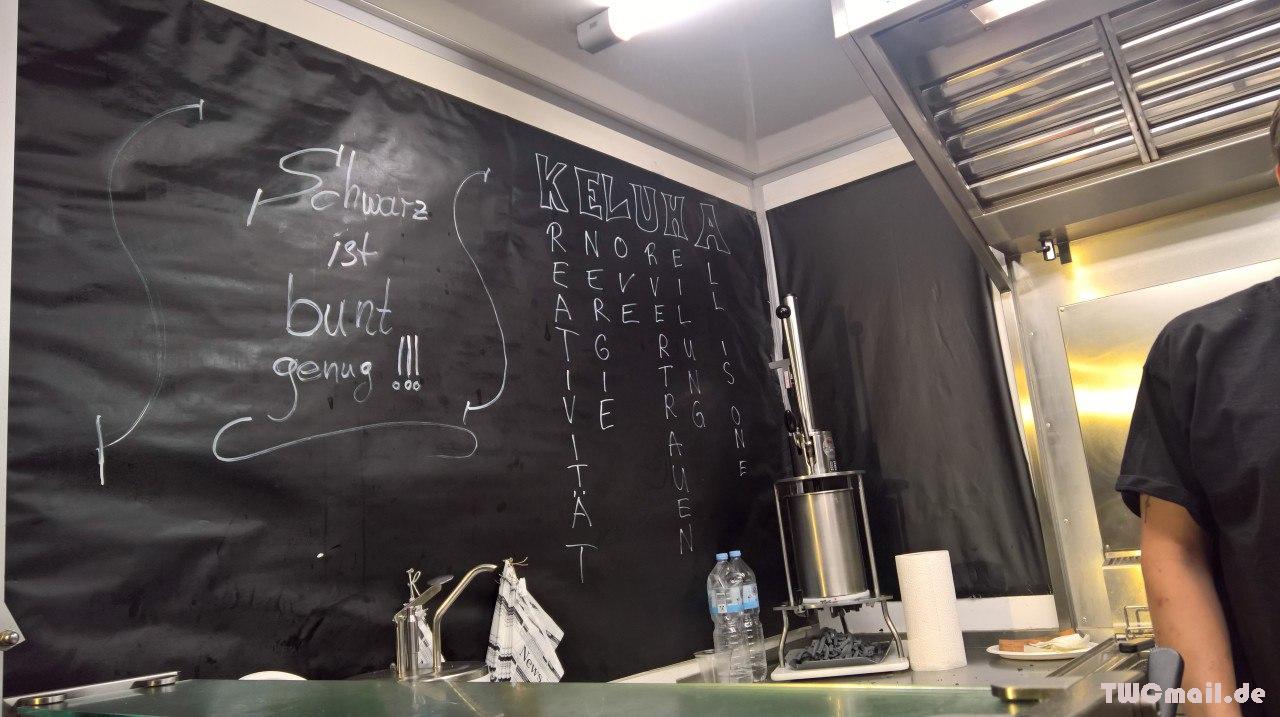 Schwarz
ist
bunt
genug !!!
KELUHA
REATIVITÄT
NERGIE
OVE
RVERTRAUEN
EILUNG
LL IS ONE
News
TWCmail.de